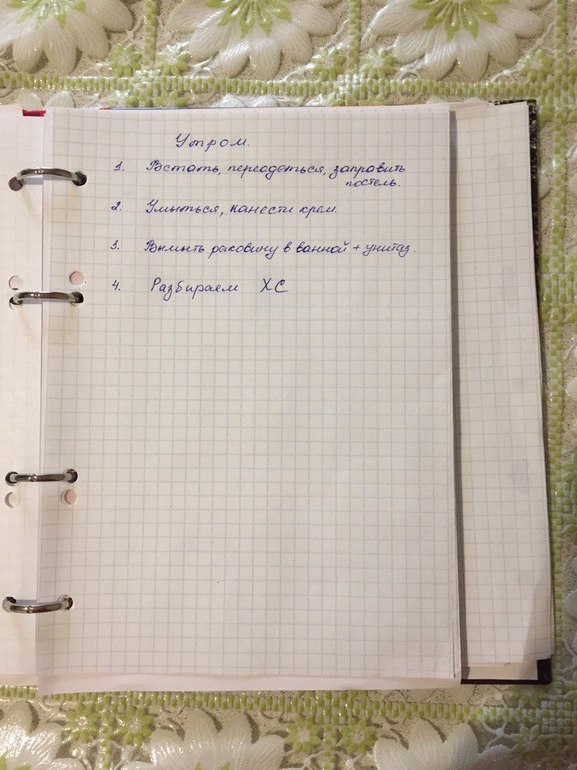 Утром.
1. Встать, переодеться, заправить
постель.
2. Умыться, нанести крем.
3. Вымыть раковину в ванной + унитаз.
4. Разбираем ХС